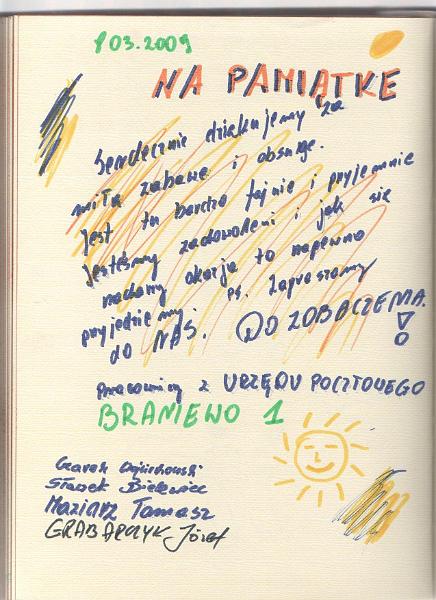 8 03.2009
NA PAMIĄTKE
Serdecznie dziękujemy za
miłą zabawe i obsuge.
Jest tu bardzo fajnie i przyjemnie
Jesteśmy zadowoleni i jak się
nadarzy okazja to napewno
przyjedziemy. ps. Zapraszamy
do NAS. DO ZOBACZENIA.!
pracownicy z URZĘDU POCZTOWEGO
BRANIEWO 1
Sławek
Maziarz Tomasz
GRABARCZYK Józef